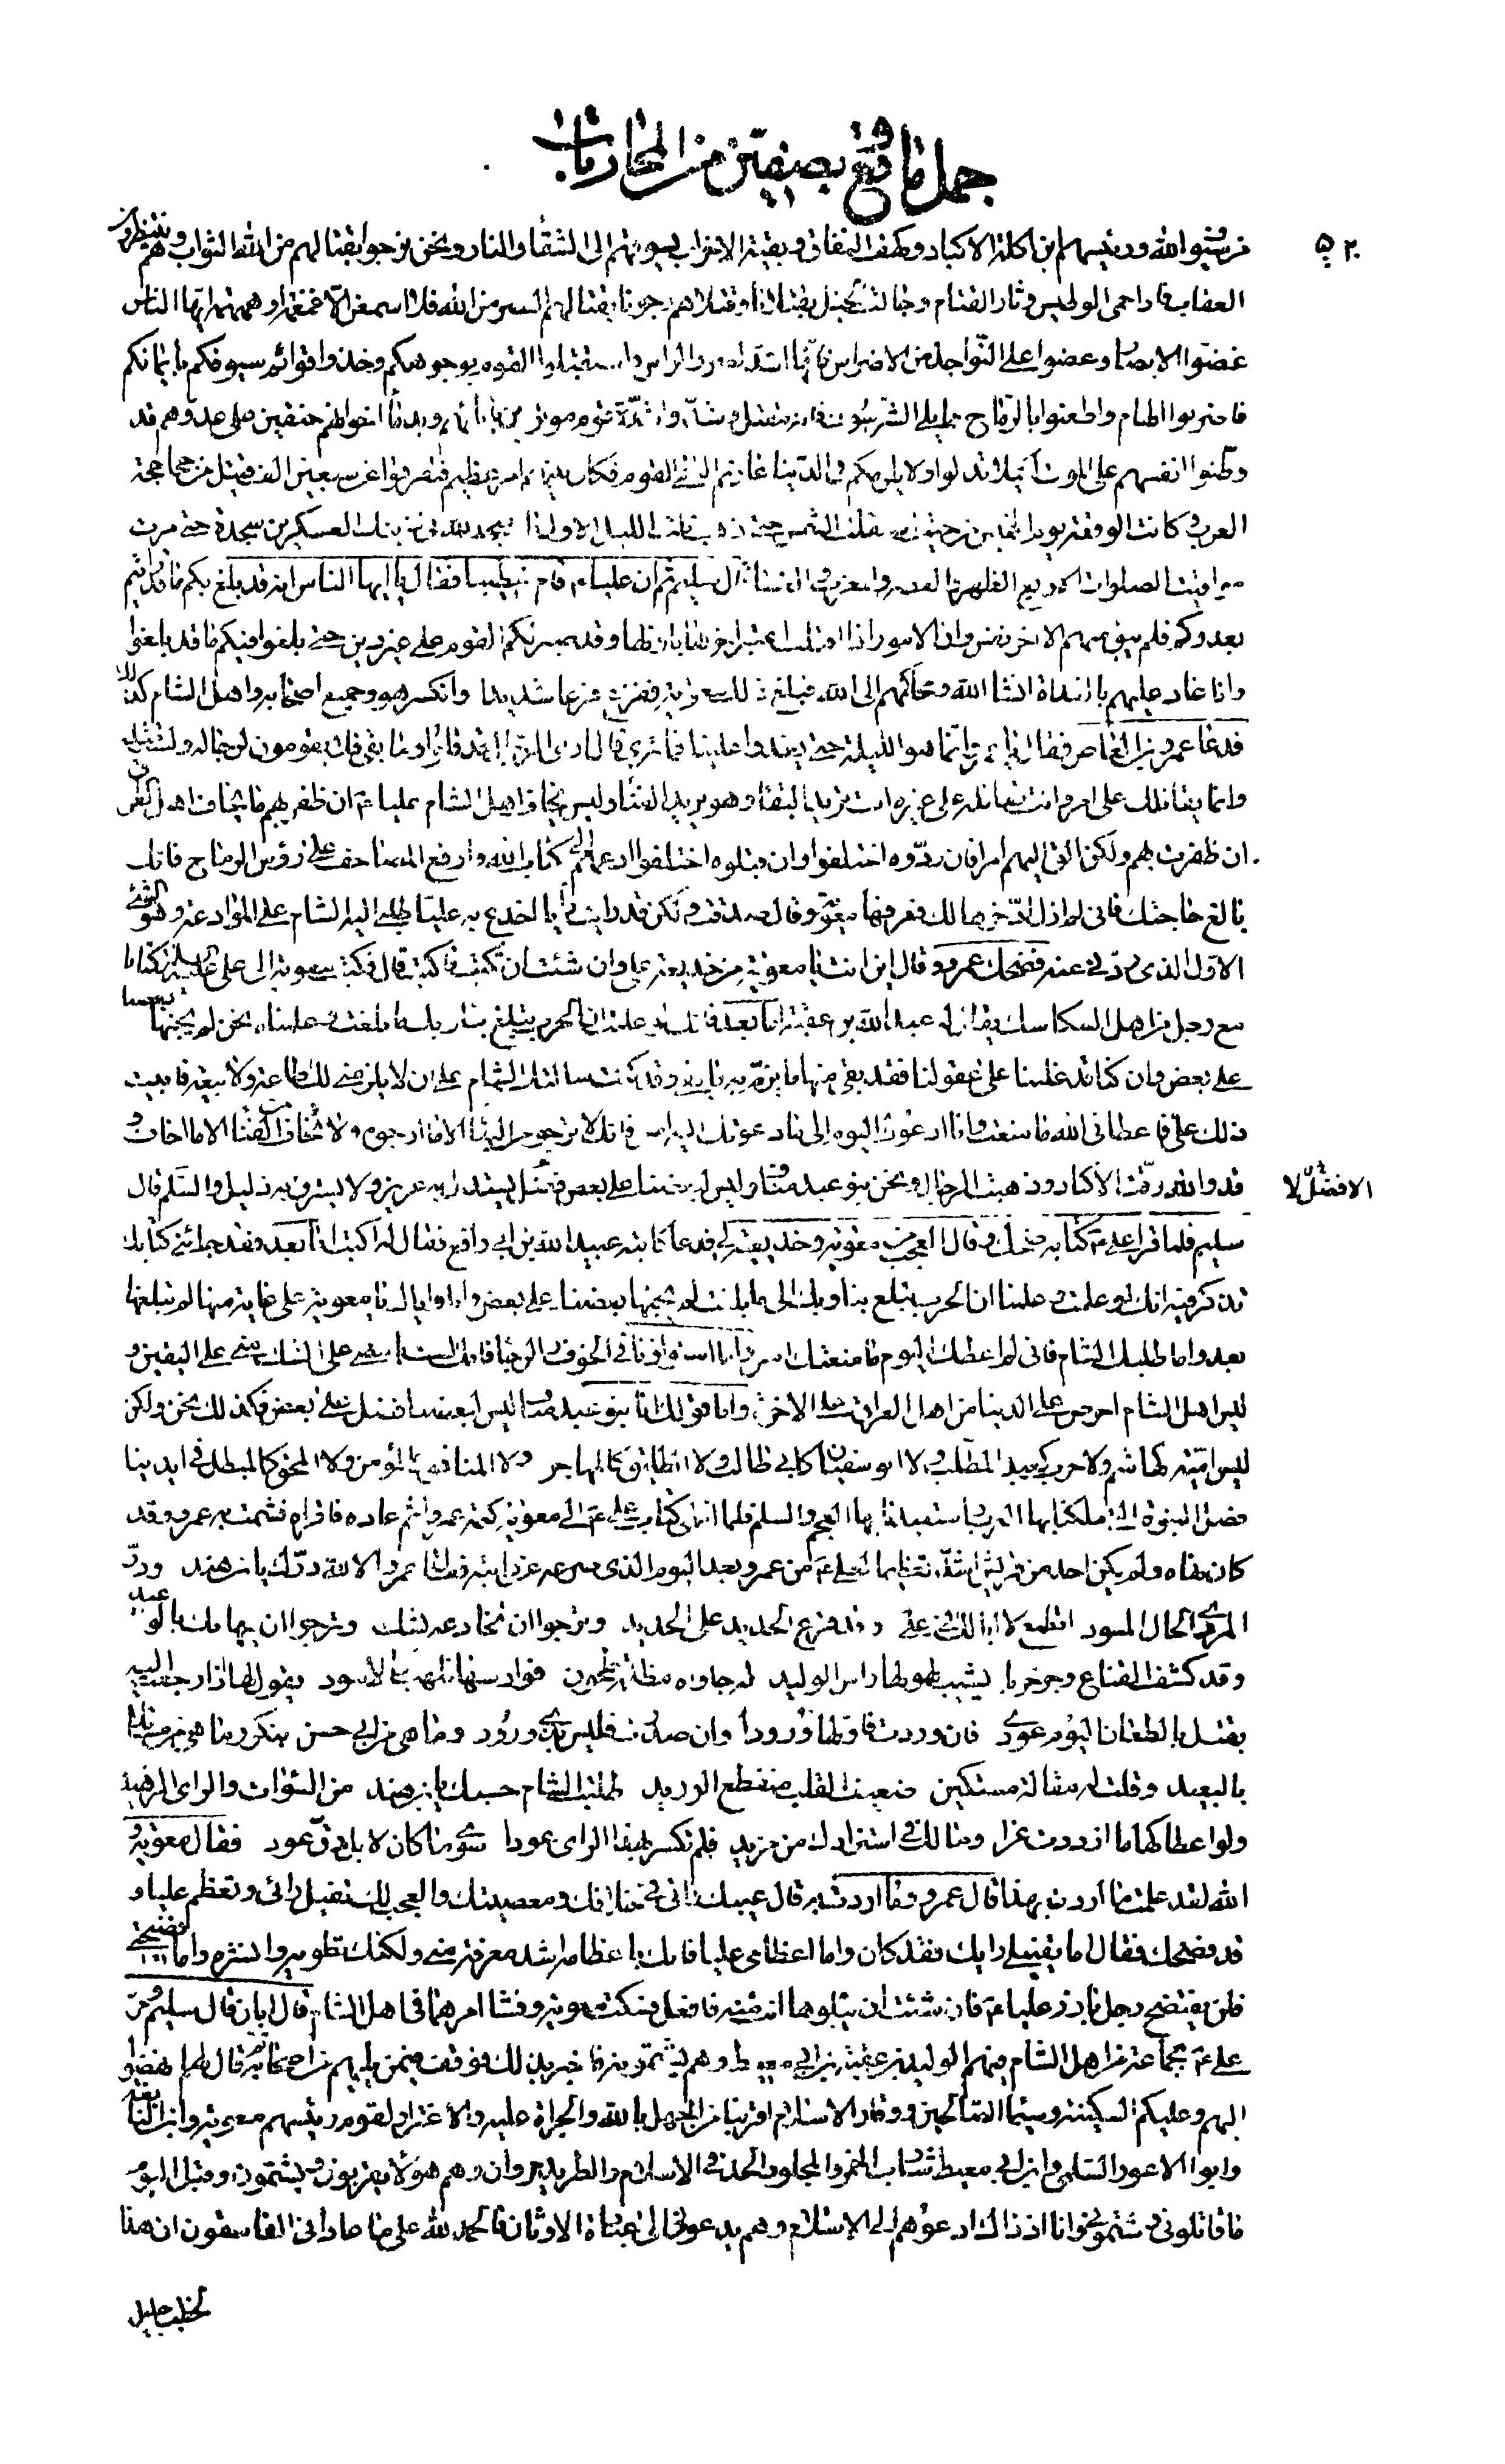 جمل ما وقع بصفين من المحاربات
٥٢٠
فرسيوا الله ورئيسهم ابن اكلة الاكباد وكهف النفاق وبقية الاحزاب يسوقهم الى الشقا والنار ونحن نرجوا بقتالهم من الله الثواب وهم ينتظرون
العقاب فاذا حمى الوطيس وثار القتام وجالت الخيل بقتلانا وقتلاهم رجونا بقتالهم النصر من الله فلا اسمعن الا غمغمة او همهمة ايها الناس
غضوا الابصار وعضوا على النواجذ من الاضراس فانها اشد الراس واستقبلوا القوم بوجوهكم وخذوا قوائم سيوفكم بايمانكم
فاضربوا الهام واطعنوا بالرماح مما يلى الشرسوف فانه مقتل وشدوا شدة قوم موتورين بابائهم وبدماء اخوانهم حنقين على عدوهم قد
وطنوا انفسهم على الموت لكيلا تذلوا ولا يلزمكم فى الدنيا عار ثم التقى القوم فكان بينهم امر عظيم فتفرقوا عن سبعين الف قتيل من جحاجحة
العرب وكانت الوقعة يوم الخميس من حيث استقلت الشمس حتى ذهب ثلث الليل الاول ما سجد لله فى ذينك العسكرين سجدة حتى مرت
مواقيت الصلوات الاربع الظهر والعصر والمغرب والعشاء قال سليم ثم ان عليا ع قام خطيبا فقال يا ايها الناس انه قد بلغ بكم ما قد رايتم
بعدوكم فلم يبق منهم الا اخر نفس وان الامور اذا اقبلت اعتبر اخرها باولها وقد صبر لكم القوم على غير دين حتى بلغوا فيكم ما قد بلغوا
وانا غاد عليهم بالغداة انشا الله ومحاكمهم الى الله فبلغ ذلك معوية ففزع فزعا شديدا وانكسر هو وجميع اصحابه واهل الشام كذلك
فدعا عمرو بن العاص فقال يا عمرو انما هو الليلة حتى يغدوا علينا فما ترى قال ارى الرجال قد قلوا وما بقى فلا يقومون لرجاله ولست مثله
وانما يقاتلك على امر وانت تقاتله على غيره انت تريد البقا وهو يريد الفنا وليس يخاف اهل الشام عليا ع ان ظفر بهم ما يخاف اهل العراق
ان ظفرت بهم ولكن الق اليهم امرا فان ردوه اختلفوا وان قبلوه اختلفوا ادعهم الى كتاب الله وارفع المصاحف على رؤس الرماح فانك
بالغ حاجتك فانى لم ازل ادخرها لك فعرفها معوية وقال صدقت ولكن قد رايت رايا اخدع به عليا طلبى اليه الشام على الموادعة وهو الشئ
الاول الذى ردنى عنه فضحك عمرو وقال اين انت يا معوية من خديعة على وان شئت ان تكتب فاكتب قال فكتب معوية الى على ع كتابا
مع رجل من اهل السكاسك يقال له عبد الله بن عقبة اما بعد فانك لو علمت ان الحرب يبلغ بنا وبك ما بلغت وعلمناه نحن لم يجنها بعضنا
على بعض وان كنا قد غلبنا على عقولنا فقد بقى منها ما نرم به ما مضى وقد كنت سالتك الشام على ان لا يلزمنى لك طاعة ولا بيعة فابيت
ذلك على فاعطانى الله ما منعت وانا ادعوك اليوم الى ما دعوتك اليه امس فانك لا ترجو من البقا الا ما ارجوه ولا تخاف من الفنا الا ما اخاف و
قد والله رقت الاكباد وذهبت الرجال ونحن بنو عبد مناف وليس لبعضنا على بعض فضل يستذل به عزيز ولا يسترق به ذليل والسلم قال
الا فضل لا
سليم فلما قرا على ع كتابه ضحك وقال العجب من معوية وخديعته لى فدعا كاتبه عبيد الله بن ابى رافع فقال له اكتب اما بعد فقد جائنى كتابك
تذكر فيه انك لو علمت وعلمنا ان الحرب يبلغ بنا وبك الى ما بلغت لم يجنها بعضنا على بعض وانا واياك يا معوية على غاية منها لم نبلغها
بعد واما طلبك الشام فانى لم اعطك اليوم ما منعتك امس واما استوائنا فى الخوف والرجا فانك لست بامضى على الشك منى على اليقين و
ليس اهل الشام احرص على الدنيا من اهل العراق على الاخرة واما قولك انا بنو عبد مناف ليس لبعضنا فضل على بعض فكذلك نحن ولكن
ليس امية كهاشم ولا حرب كعبد المطلب ولا ابو سفيان كابى طالب ولا الطليق كالمهاجر ولا المنافق كالمؤمن ولا المحق كالمبطل فى ايدينا
فضل النبوة التى ملكنا بها العرب واستعبدنا بها العجم والسلم فلما انتهى كتاب على ع الى معوية كتمه عمرو ثم دعاه فاقراه فشمت به عمرو وقد
كان نهاه ولم يكن احد من قريش اشد تعظيما لعلى ع من عمرو بعد اليوم الذى صرعه عن دابته فقال عمرو الا لله درك يابن هند ودر
المرء الحال المسود اتطمع لا ابا لك فى على وقد قرع الحديد على الحديد وترجوا ان تخادعه بشك وترجوا ان يهابك بالوعيد
وقد كشف القناع وجر حربا يشيب لهولها راس الوليد له جاواه مظلمة طحون فوارسها تلهب كالاسود يقول لها اذا رجعت اليه
بقتل بالطعان اليوم عودى فان وردت فاولها ورودا وان صدت فليس بذى ورود وما هى من ابى حسن بنكر وما هى من مسائك
بالبعيد وقلت له مقالة مستكين ضعيف القلب منقطع الوريد طلبت الشام حسبك يابن هند من السوات والراى الزهيد
ولو اعطاكها ما ازددت عزا ومالك فى استزادك من مزيد فلم تكسر بهذا الراى عودا سوى ما كان لا بل دق عود فقال معوية و
الله لقد علمت ما اردت بهذا قال عمرو وما اردت به قال عيبك رائى وخلافك ومعصيتك والعجب لك تفيل رائى وتعظم عليا و
قد فضحك فقال اما تفييلى رايك فقد كان واما اعظامى عليا فانك باعظامه اشد معرفة منى ولكنك تطويه وانشره واما فضيحتى
فلن يفتضح رجل بارز عليا ع فان شئت ان تبلوها انت منه فافعل فسكت معوية وفشا امرهما فى اهل الشام قال ابان قال سليم ومر
على ع بجماعة من اهل الشام منهم الوليد بن عقبة بن ابى معيط وهم يشتمونه فاخبر بذلك فوقف فيمن يليهم من اصحابه ثم قال لهم انهضوا
اليهم وعليكم السكينة وسيما الصالحين ووقار الاسلام اقربنا من الجهل بالله والجراة عليه والاغترار لقوم رئيسهم معوية وابن النابغة
وابو الاعور السلمى وابن ابى معيط شارب الخمر والمجلود الحد فى الاسلام والطريد مروان وهم هؤلاء يقربون ويشتمون وقبل اليوم
ما قاتلونى وشتمونى وانا اذ ذاك ادعوهم الى الاسلام وهم يدعونى الى عبادة الاوثان فالحمد لله على ما عادانى الفاسقون ان هذا
لخطب جليل